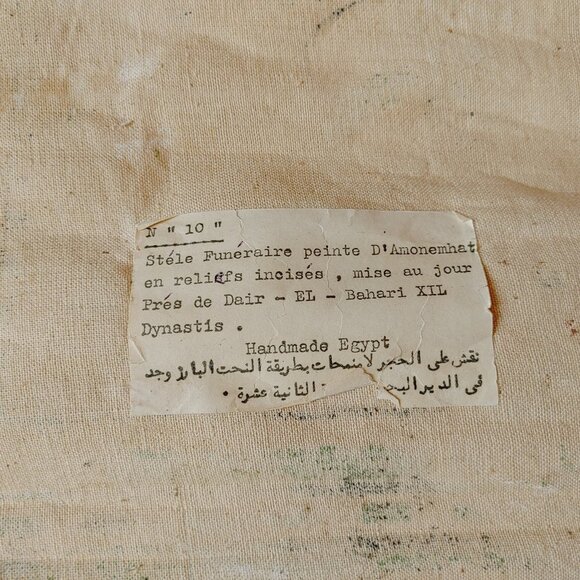 N " 10 "
Stéle Funéraire peinte D'Amonemhat
en reliefs incisés , mise au jour
Prés de Dair - EL - Bahari XIL
Dynastis .
Handmade Egypt
نقش على الحجر لامنمحات بطريقة النحت البارز وجد
فى الدير الثانية عشرة .